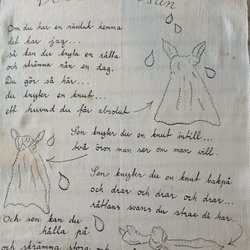 Om du har en näsduk hemma
det har jag...
så kan du knyta en råtta
och skrämma nån en dag.
Du gör så här...
du knyter en knut...
ett huvud du får absolut
Sen knyter du en knut intill...
två öron man ser om man vill.
Sen knyter du en knut bakpå
och drar och drar och drar...
råttans svans du strax då har...
Och sen kan du
hålla på
och skrämma stora och